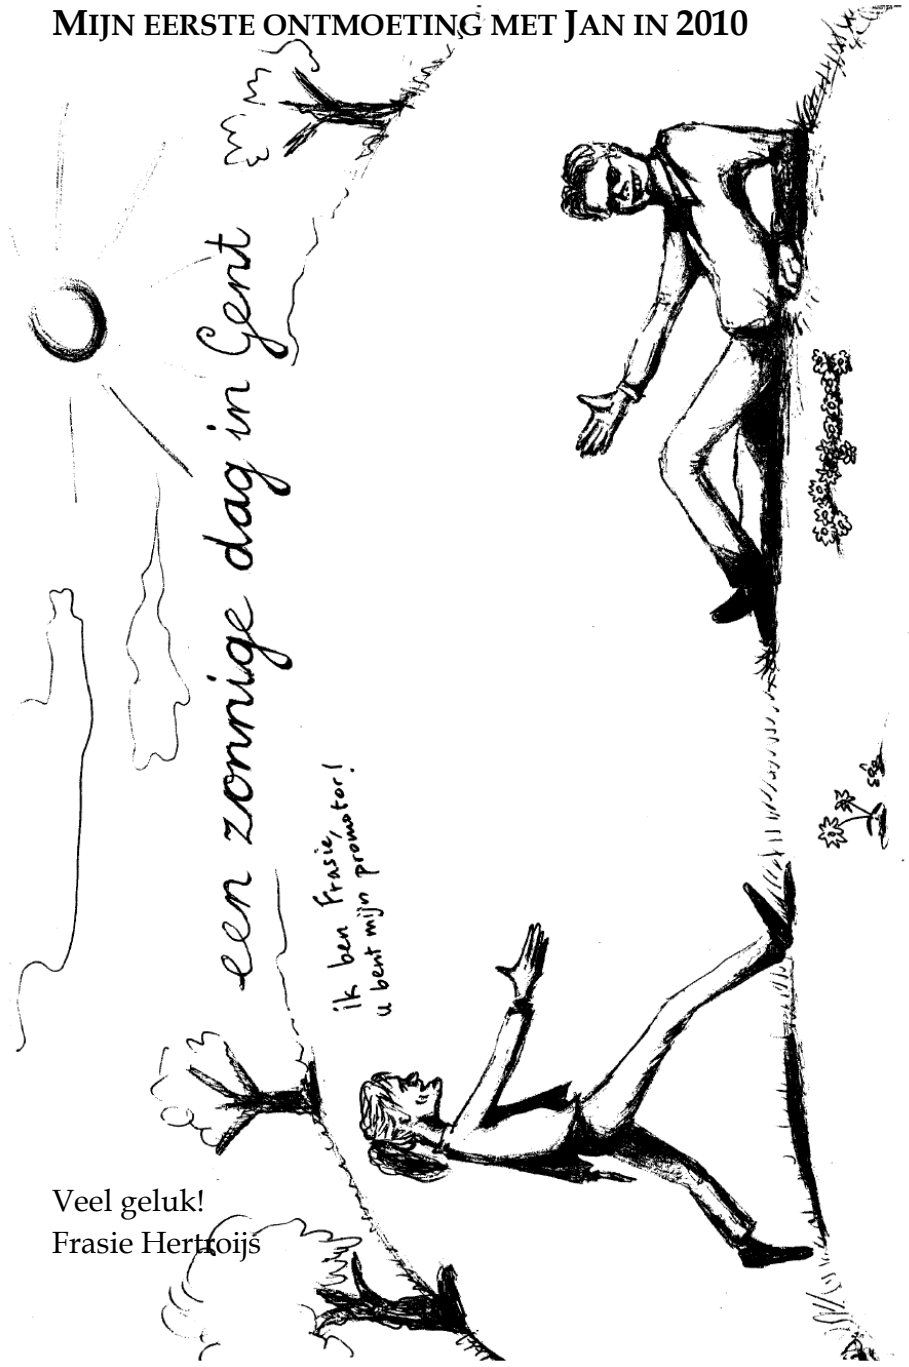 MIJN EERSTE ONTMOETING MET JAN IN 2010
een zonnige dag in Gent
ik ben Frasie,
u bent mijn promotor!
Veel geluk!
Frasie Hertroijs